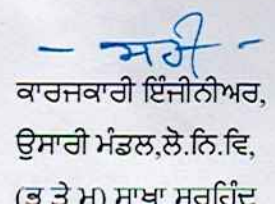 - ਸਹੀ -
ਕਾਰਜਕਾਰੀ ਇੰਜੀਨੀਅਰ,
ਉਸਾਰੀ ਮੰਡਲ,ਲੋ.ਨਿ.ਵਿ,
(ਭ ਤੇ ਮ) ਸ਼ਾਖਾ ਸਰਹਿੰਦ